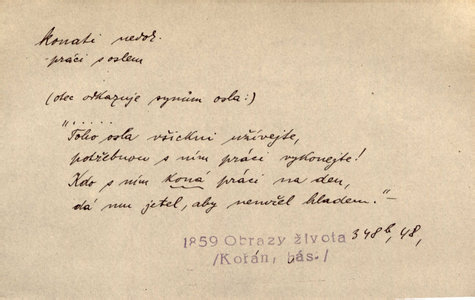 konati nedok.
práci s oslem
(otec odkazuje synům osla:)
".....
Toho osla všickni užívejte,
potřebnou s ním práci vykonejte!
Kdo s ním koná práci na den,
dá mu jetel, aby nemřel hladem."-
1859 Obrazy života 348b, 48,
/Kořán, bás./